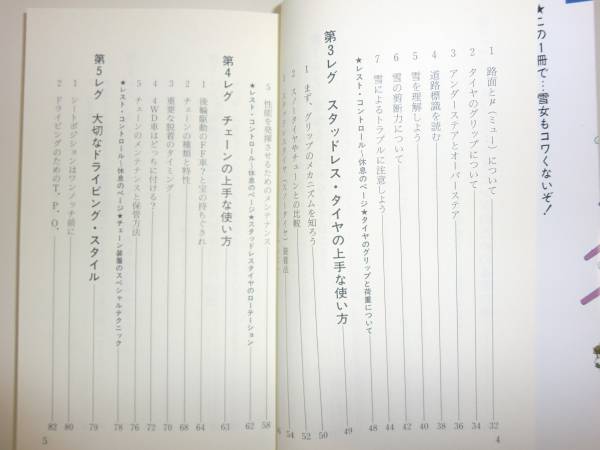 ★この1冊で…雪女もコワくないぞ!
1 路面とμ(ミュー)について 32
2 タイヤのグリップについて 34
3 アンダーステアとオーバーステア 36
4 道路標識を読む 38
5 雪を理解しよう 42
6 雪の剪断力について 44
7 雪によるトラブルに注意しよう 46
★レスト・コントロール〜休息のページ★タイヤのグリップと荷重について 48
第3レグ スタッドレス・タイヤの上手な使い方 49
1 まず、グリップのメカニズムを知ろう 50
2 スノータイヤやチェーンとの比較 52
4
5 性能を発揮させるためのメンテナンス 58
★レスト・コントロール〜休息のページ★スタッドレスタイヤのローテーション 62
第4レグ チェーンの上手な使い方 63
1 後輪駆動のFF車?と宝の持ちぐされ 64
2 チェーンの種類と特性 68
3 重要な脱着のタイミング 70
4 4WD車はどっちに付ける? 72
5 チェーンのメンテナンスと保管方法 76
★レスト・コントロール〜休息のページ★チェーン装着のスペシャルテクニック 78
第5レグ 大切なドライビング・スタイル 79
1 シートポジションはワンノッチ前に 80
2 ドライビングのためのT.P.O. 82
5